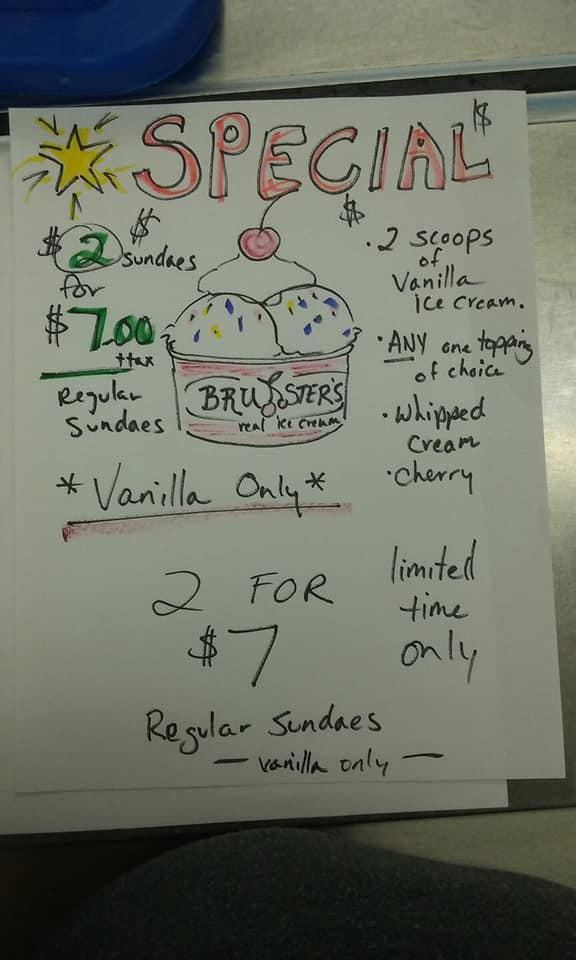 SPECIAL $
$
$ 2 $
sundaes
for
$7.00
+tax
Regular
Sundaes
BRUSTER'S
real ice cream
• 2 scoops
of
Vanilla
ice cream.
• ANY one topping
of choice
• whipped
cream
• cherry
* Vanilla Only *
2 FOR
$7
limited
time
only
Regular Sundaes
— vanilla only —